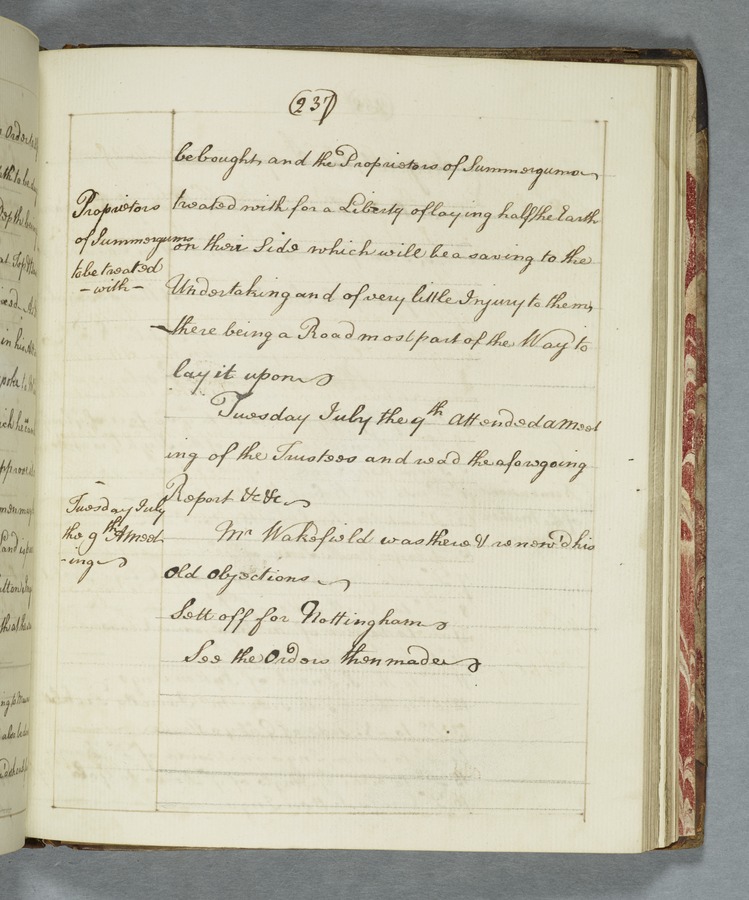 (237)
be bought, and the Proprietors of Summergums
Proprietors
of Summergums
to be treated
- with -
treated with for a Liberty of laying half the Earth
on their Side which will be a saving to the
Undertaking and of very little Injury to them,
there being a Road most part of the Way to
lay it upon
Tuesday July the 9th attended a Meet
ing of the Trustees and read the aforegoing
Report &c &c
Tuesday July
the 9th A Meet-
-ing
Mr Wakefield was there & renew'd his
old objections
Sett off for Nottingham
See the Orders then made